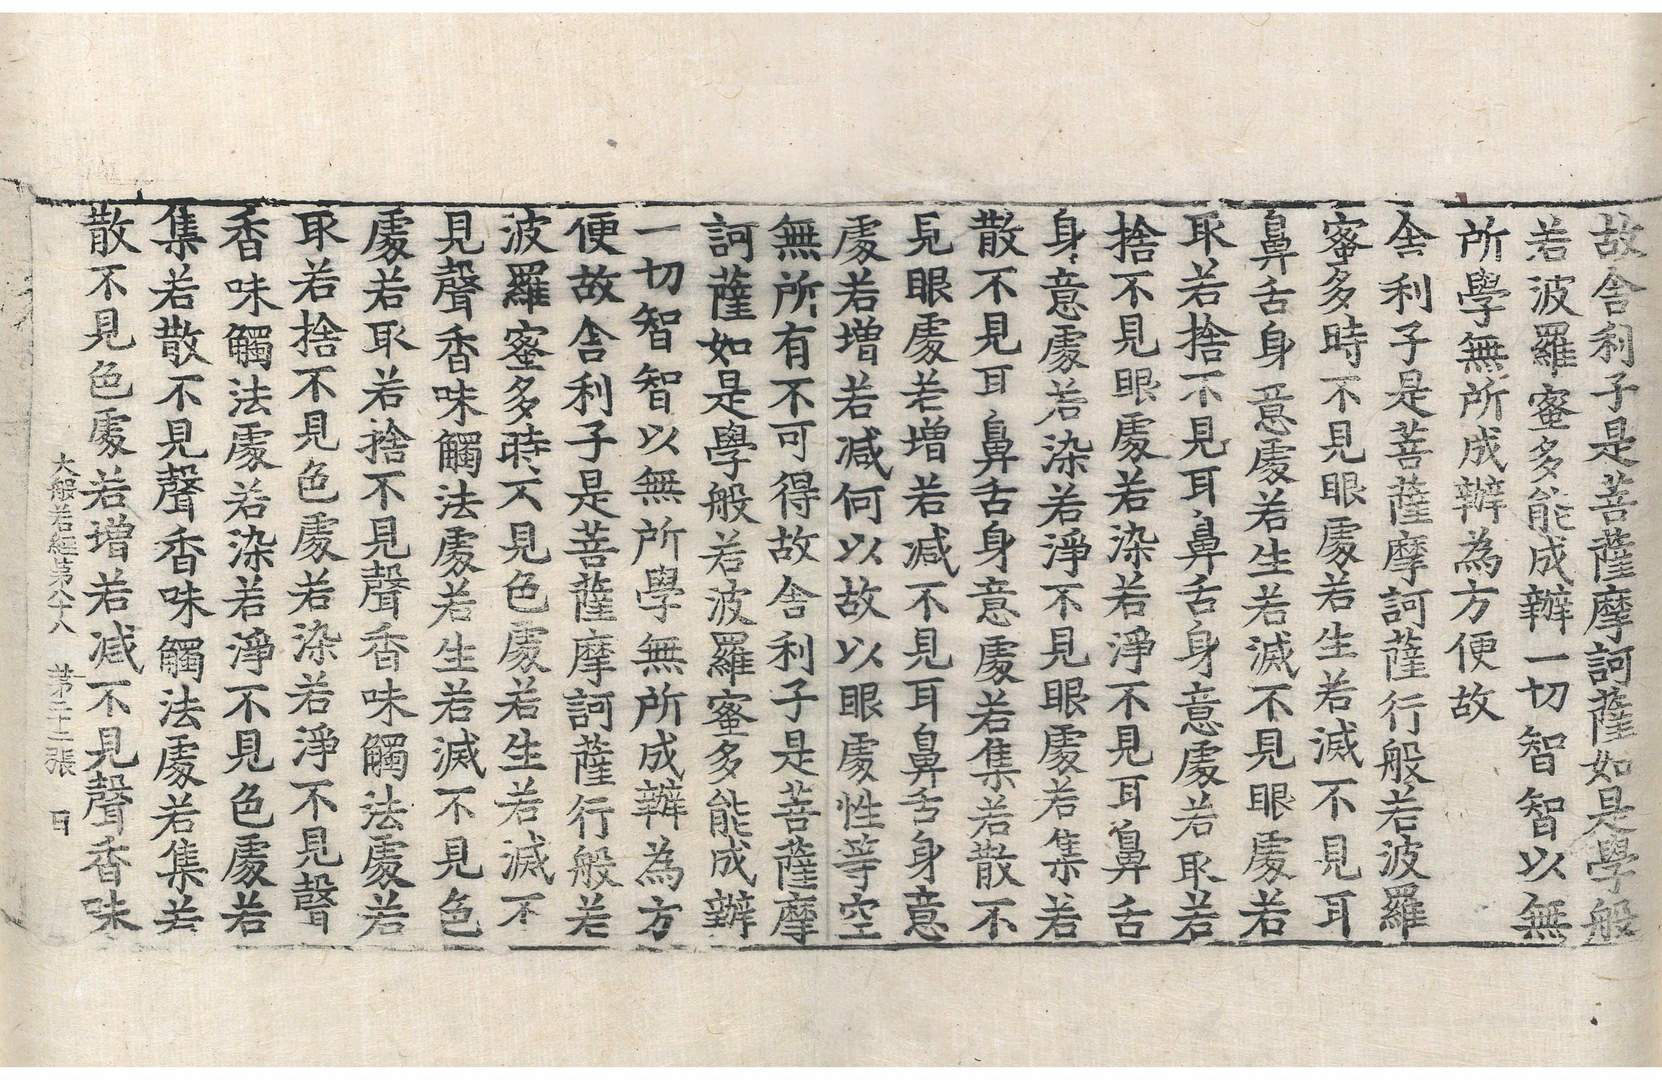 故舍利子是菩薩摩訶薩如是學般
若波羅蜜多能成辦一切智智以無
所學無所成辦為方便故
舍利子是菩薩摩訶薩行般若波羅
蜜多時不見眼處若生若滅不見耳
鼻舌身意處若生若滅不見眼處若
取若捨不見耳鼻舌身意處若取若
捨不見眼處若染若淨不見耳鼻舌
身意處若染若淨不見眼處若集若
散不見耳鼻舌身意處若集若散不
見眼處若增若減不見耳鼻舌身意
處若增若減何以故以眼處性等空
無所有不可得故舍利子是菩薩摩
訶薩如是學般若波羅蜜多能成辦
一切智智以無所學無所成辦為方
便故舍利子是菩薩摩訶薩行般若
波羅蜜多時不見色處若生若滅不
見聲香味觸法處若生若滅不見色
處若取若捨不見聲香味觸法處若
取若捨不見色處若染若淨不見聲
香味觸法處若染若淨不見色處若
集若散不見聲香味觸法處若集若
散不見色處若增若減不見聲香味
大般若經第八十八 第二十二張 日